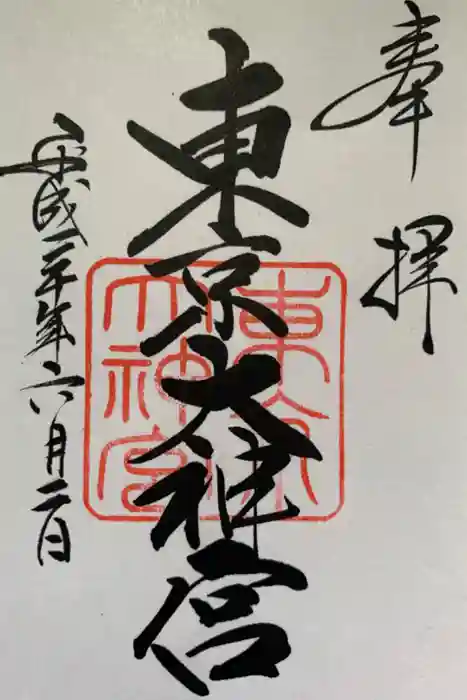 奉拝
東京大神宮
東京
大神宮
平成二十年六月二日